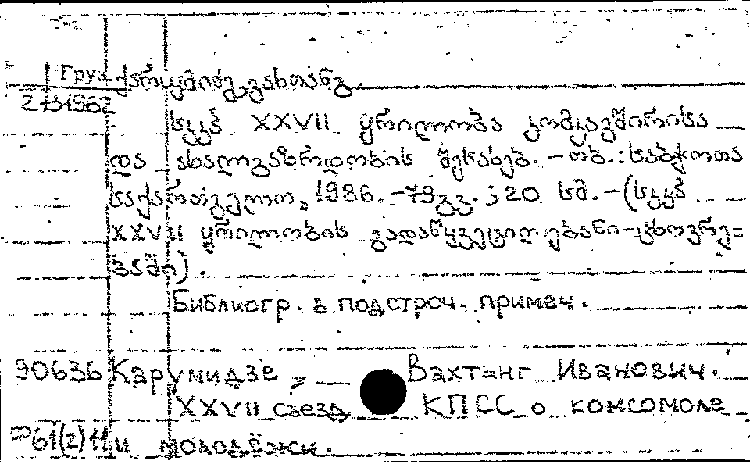 Груз. კარუმიძე, ვახტანგ.
2731962
სკკპ XXVII ყრილობა კომკავშირისა
და ახალგაზრდობის შესახებ. - თბ.: საბჭოთა
საქართველო, 1986. - 79 გვ.; 20 სმ. - (სკკპ
XXVII ყრილობის გადაწყვეტილებანი - ცხოვრე=
ბაში).
Библиогр. в подстроч. примеч.
90636 Карумидзе, Вахтанг Иванович.
XXVII съезд КПСС о комсомоле
61(2)11 и молодёжи.